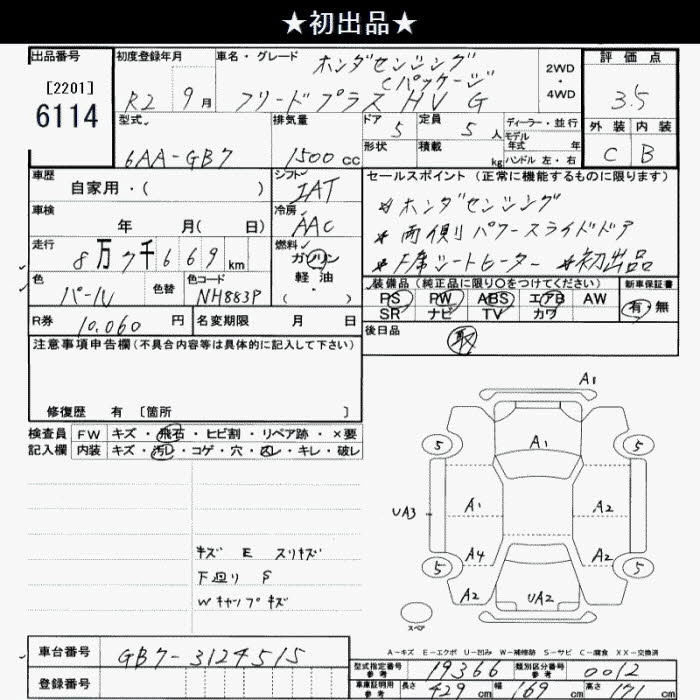 ★初出品★
出品番号 初度登録年月 車名・グレード ホンダセンシング 評価点
[2201] Cパッケージ 2WD・4WD
6114 R2 9月 フリードプラス HV G 3.5
型式 排気量 ドア 5 定員 5人 ディーラー・並行 外装 内装
6AA-GB7 1500cc 形状 積載 kg モデル年式 年 C B
ハンドル 左・右
車歴 シフト セールスポイント (正常に機能するものに限ります)
自家用・( ) IAT ＊ホンダセンシング
車検 冷房 ＊両側パワースライドドア
年 月( 日) AAC ＊F席シートヒーター ＊初出品
走行 燃料
8万7千669km ガソリン 装備品 (純正品に限り○をつけてください) 新車保証書
色 色替 色コード 軽・油 PS PW ABS エアB AW 有・無
パール NH883P ・( ) SR ナビ TV カワ
R券 10,060円 名変期限 月 日 後日品
取
注意事項申告欄(不具合内容等は具体的に記入して下さい)
修復歴 有 [箇所 ]
検査員 FW キズ・飛石・ヒビ割・リペア跡・×要
記入欄 内装 キズ・汚レ・コゲ・穴・凹レ・キレ・破レ
キズ E スリキズ
下廻り S
Wキャップキズ
A1
5 A1 5
A1 A2
UA3
A4 A2
5 5
A2 UA2 A2
スペア
A－キズ E－エクボ U－凹み W－補修跡 S－サビ C－腐食 XX－交換済
車台番号 GB7-3124515
型式指定番号参考 19366 類別区分番号参考 0012
登録番号
車庫証明用参考 長さ 429cm 幅 169cm 高さ 171cm